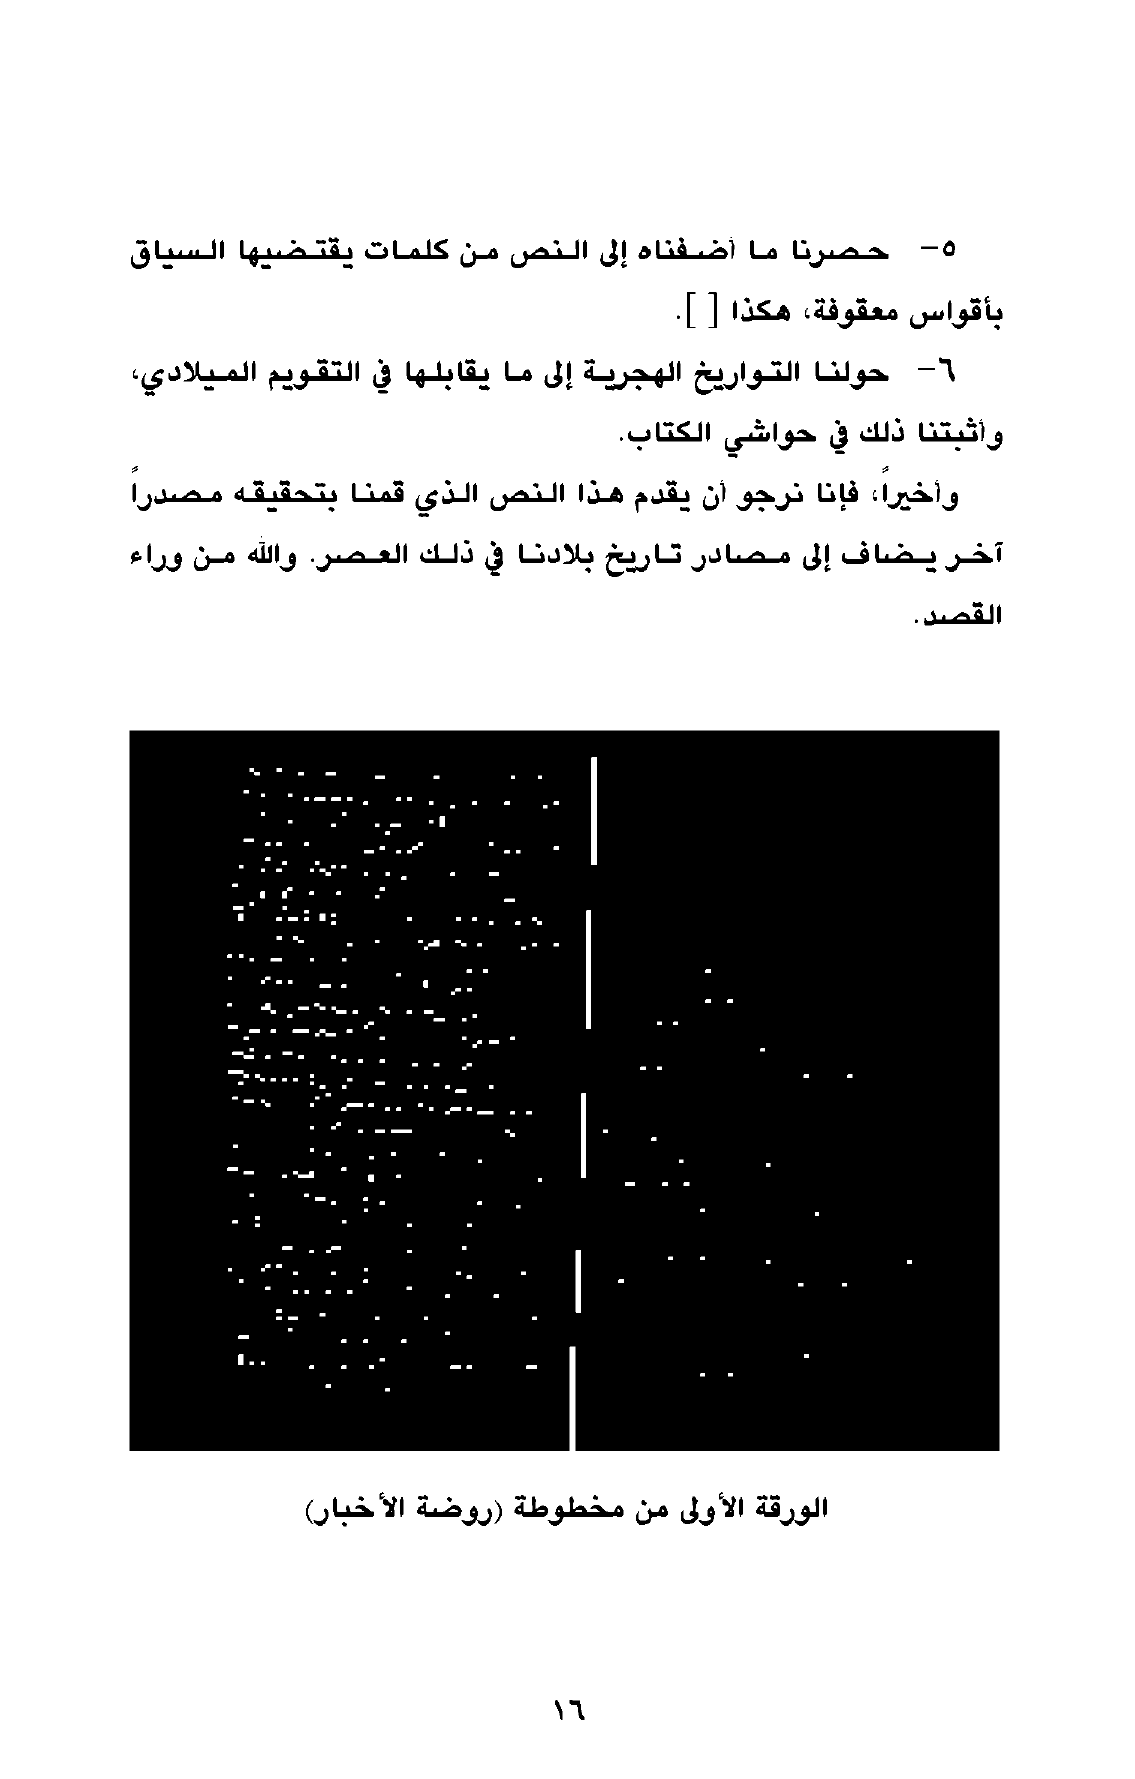 ٥- حصرنا ما أضفناه إلى النص من كلمات يقتضيها السياق
بأقواس معقوفة، هكذا [ ].
٦- حولنا التواريخ الهجرية إلى ما يقابلها في التقويم الميلادي،
وأثبتنا ذلك في حواشي الكتاب.
وأخيراً، فإنا نرجو أن يقدم هذا النص الذي قمنا بتحقيقه مصدراً
آخر يضاف إلى مصادر تاريخ بلادنا في ذلك العصر. والله من وراء
القصد.
الورقة الأولى من مخطوطة (روضة الأخبار)
١٦